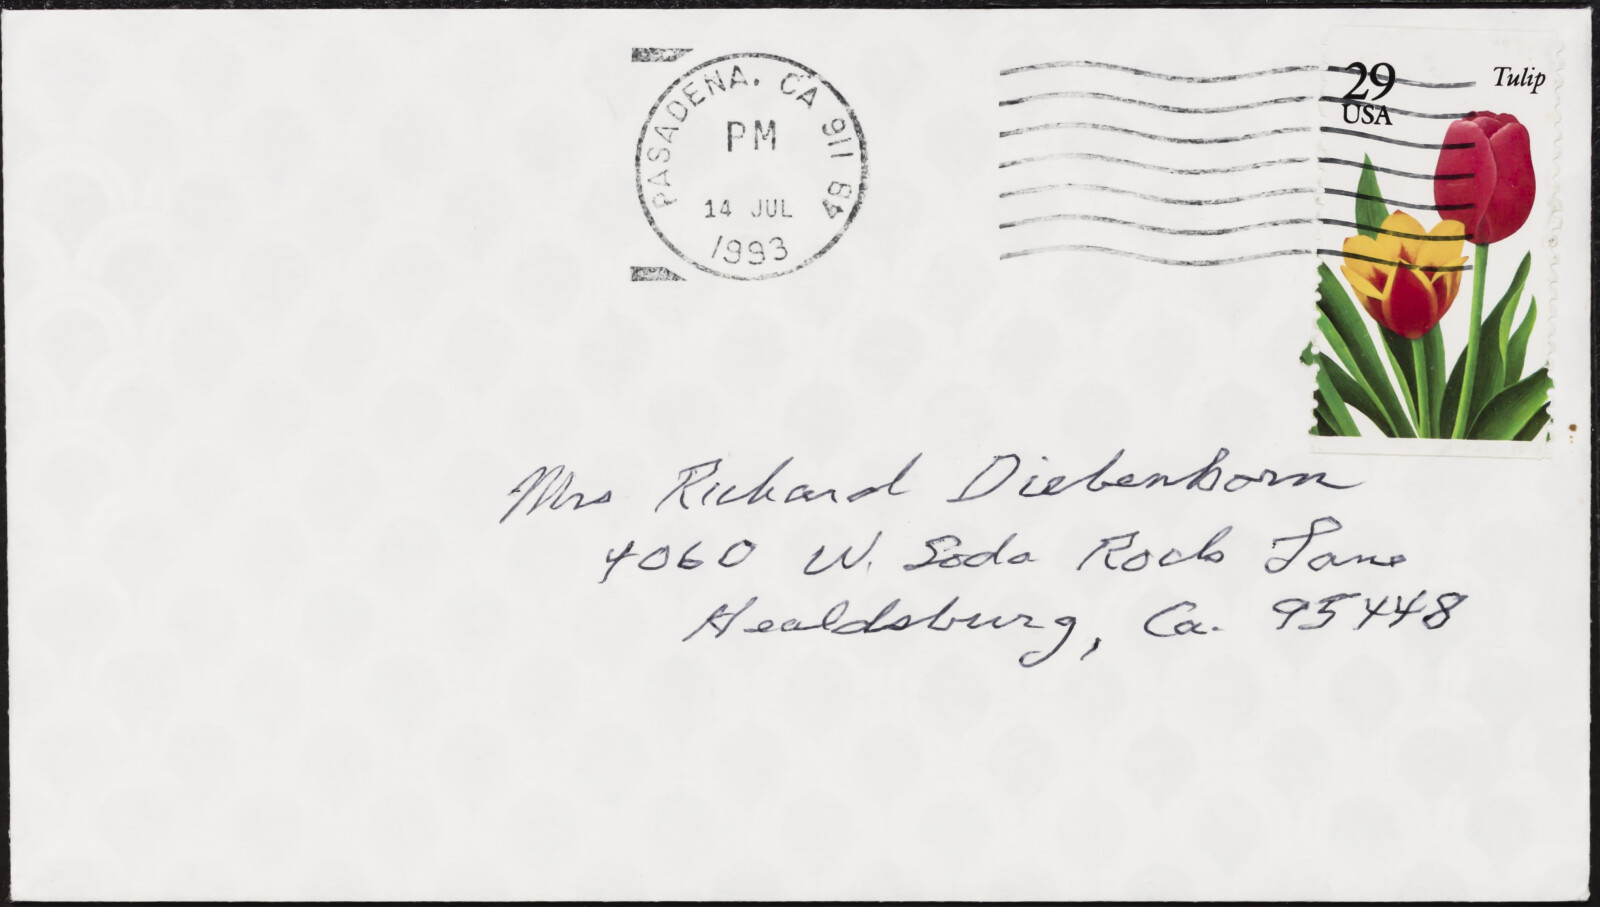 PASADENA, CA 911 84
PM
14 JUL
1993
29
USA
Tulip
Mrs Richard Diebenkorn
4060 W. Soda Rock Lane
Healdsburg, Ca. 95448